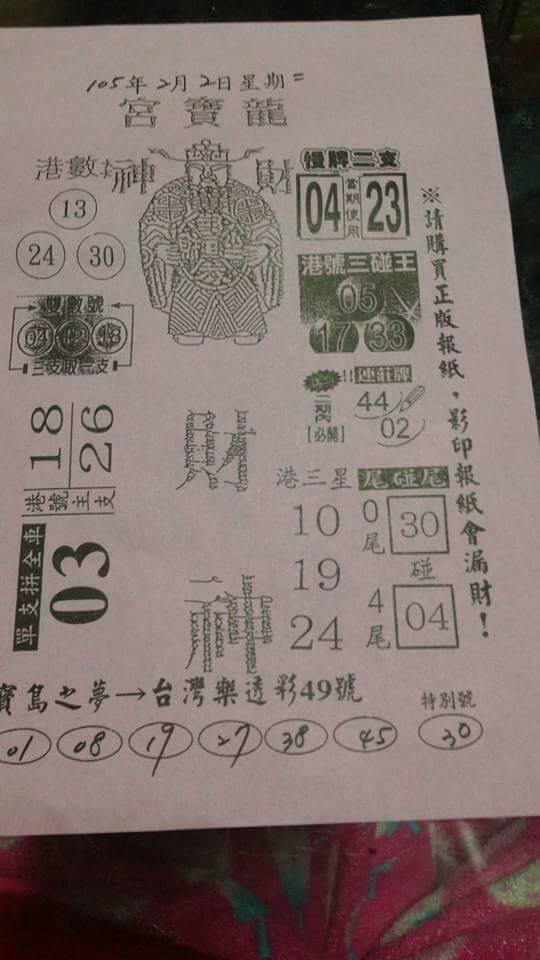 105年2月2日星期二
宮寶龍
港數
神
財
13
24 30
雙數號
04 18
三支取二支
18
26
港號主支
單支拼全車
03
慢牌二支
04
當期使用
23
港號三碰王
05
17 33
!!連莊牌
二期內
【必開】
44
02
港三星
10
19
24
尾碰尾
0尾 30
碰
4尾 04
※請購買正版報紙，影印報紙會漏財！
寶島之夢→台灣樂透彩49號
特別號
01 08 19 27 38 45 30